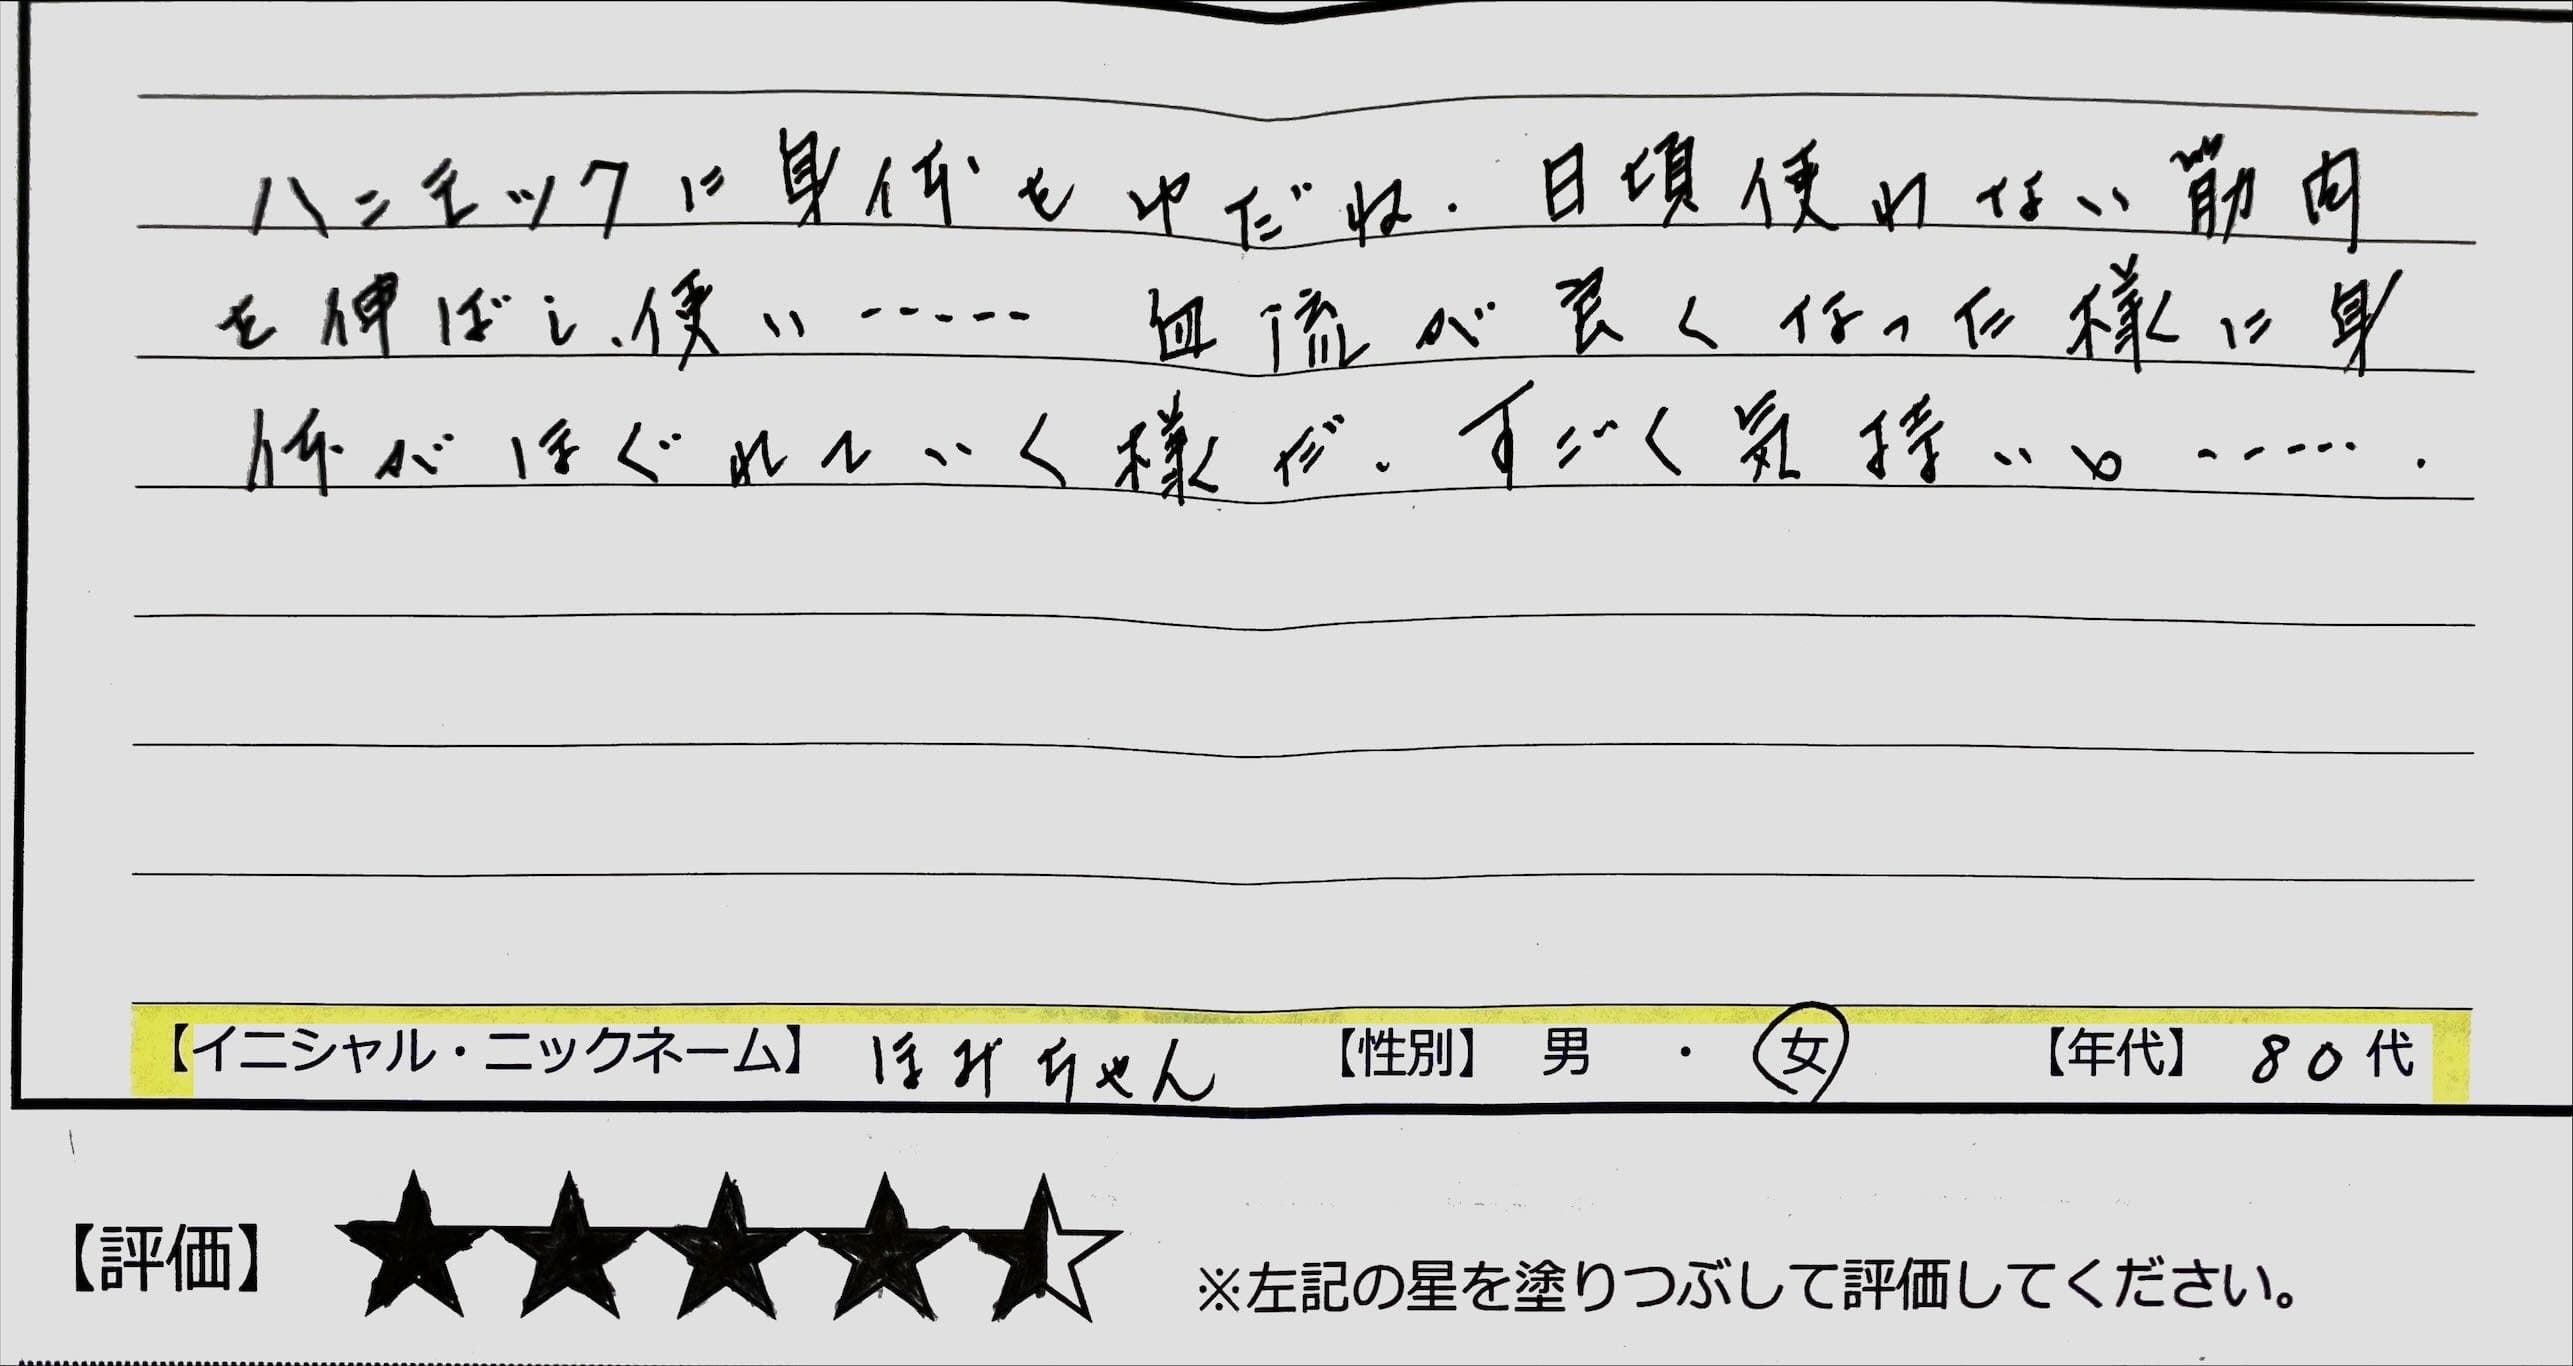 ハンモックに身体をゆだね、日頃使わない筋肉
を伸ばし、使い‥‥‥ 血流が良くなった様に身
体がほぐれていく様だ。すごく気持いい‥‥‥。
【イニシャル・ニックネーム】 ほみちゃん 【性別】 男 ・ 女 【年代】 80代
【評価】 ★★★★☆ ※左記の星を塗りつぶして評価してください。